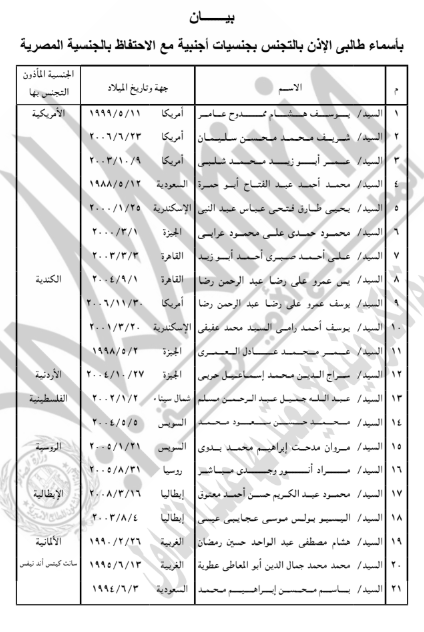 بيـــــان
بأسماء طالبى الإذن بالتجنس بجنسيات أجنبية مع الاحتفاظ بالجنسية المصرية
م الاســـم جهة وتاريخ الميلاد الجنسية المأذون التجنس بها
١ السيد/ يوسف هشام ممدوح عامر أمريكا ١٩٩٩/٥/١١ الأمريكية
٢ السيد/ شريف محمد محسن سليمان أمريكا ٢٠٠٦/٦/٢٣
٣ السيد/ عمر أبو زيد محمد شلبى أمريكا ٢٠٠٣/١٠/٩
٤ السيد/ محمد أحمد عبد الفتاح أبو حمرة السعودية ١٩٨٨/٥/١٢
٥ السيد/ يحيى طارق فتحى عباس عبد النبى الإسكندرية ٢٠٠٠/١/٢٥
٦ السيد/ محمود حمدى على محمود عرابى الجيزة ٢٠٠٠/٣/١
٧ السيد/ على أحمد صبرى أحمد أبو زيد القاهرة ٢٠٠٣/٣/٣
٨ السيد/ يس عمرو على رضا عبد الرحمن رضا القاهرة ٢٠٠٤/٩/١ الكندية
٩ السيد/ يوسف عمرو على رضا عبد الرحمن رضا أمريكا ٢٠٠٦/١١/٣٠
١٠ السيد/ يوسف أحمد رامى السيد محمد عفيفى الإسكندرية ٢٠٠١/٣/٢٠
١١ السيد/ عمر محمد عادل العمرى الجيزة ١٩٩٨/٥/٢
١٢ السيد/ سراج الدين محمد إسماعيل حربى الجيزة ٢٠٠٤/١٠/٢٧ الأردنية
١٣ السيد/ عبد الله جميل عبد الرحمن مسلم شمال سيناء ٢٠٠٢/١/٢ الفلسطينية
١٤ السيد/ محمد حسن سعود محمد السويس ٢٠٠٤/٥/٥
١٥ السيد/ مروان مدحت إبراهيم محمد بدوى السويس ٢٠٠٥/١/٢١ الروسية
١٦ السيد/ مراد أنور وجدى مباشر روسيا ٢٠٠٥/٨/٣١
١٧ السيد/ محمود عبد الكريم حسن أحمد معتوق إيطاليا ٢٠٠٨/٣/١٦ الإيطالية
١٨ السيد/ بولس موسى عجايبى عيسى إيطاليا ٢٠٠٣/٨/٤
١٩ السيد/ هشام مصطفى عبد الواحد حسين رمضان الغربية ١٩٩٠/٢/٢٦ الألمانية
٢٠ السيد/ محمد محمد جمال الدين أبو المعاطى عطوية الغربية ١٩٩٥/٦/١٣ سانت كيتس أند نيفس
٢١ السيد/ باسم محسن إبراهيم محمد السعودية ١٩٩٤/٦/٣